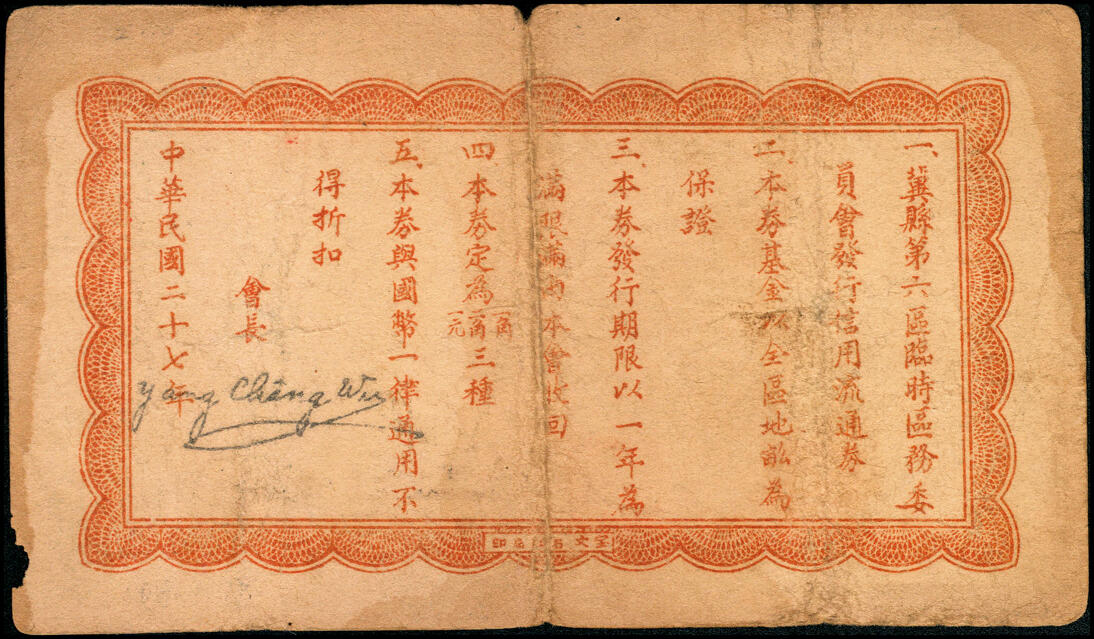 一、冀縣第六區臨時區務委
員會發行信用流通券
二、本券基金以全區地畝為
保證
三、本券發行期限以一年為
滿限滿由本會收回
四、本券定為一角二角一元三種
五、本券與國幣一律通用不
得折扣
會長
Yang Chang Wu
中華民國二十七年